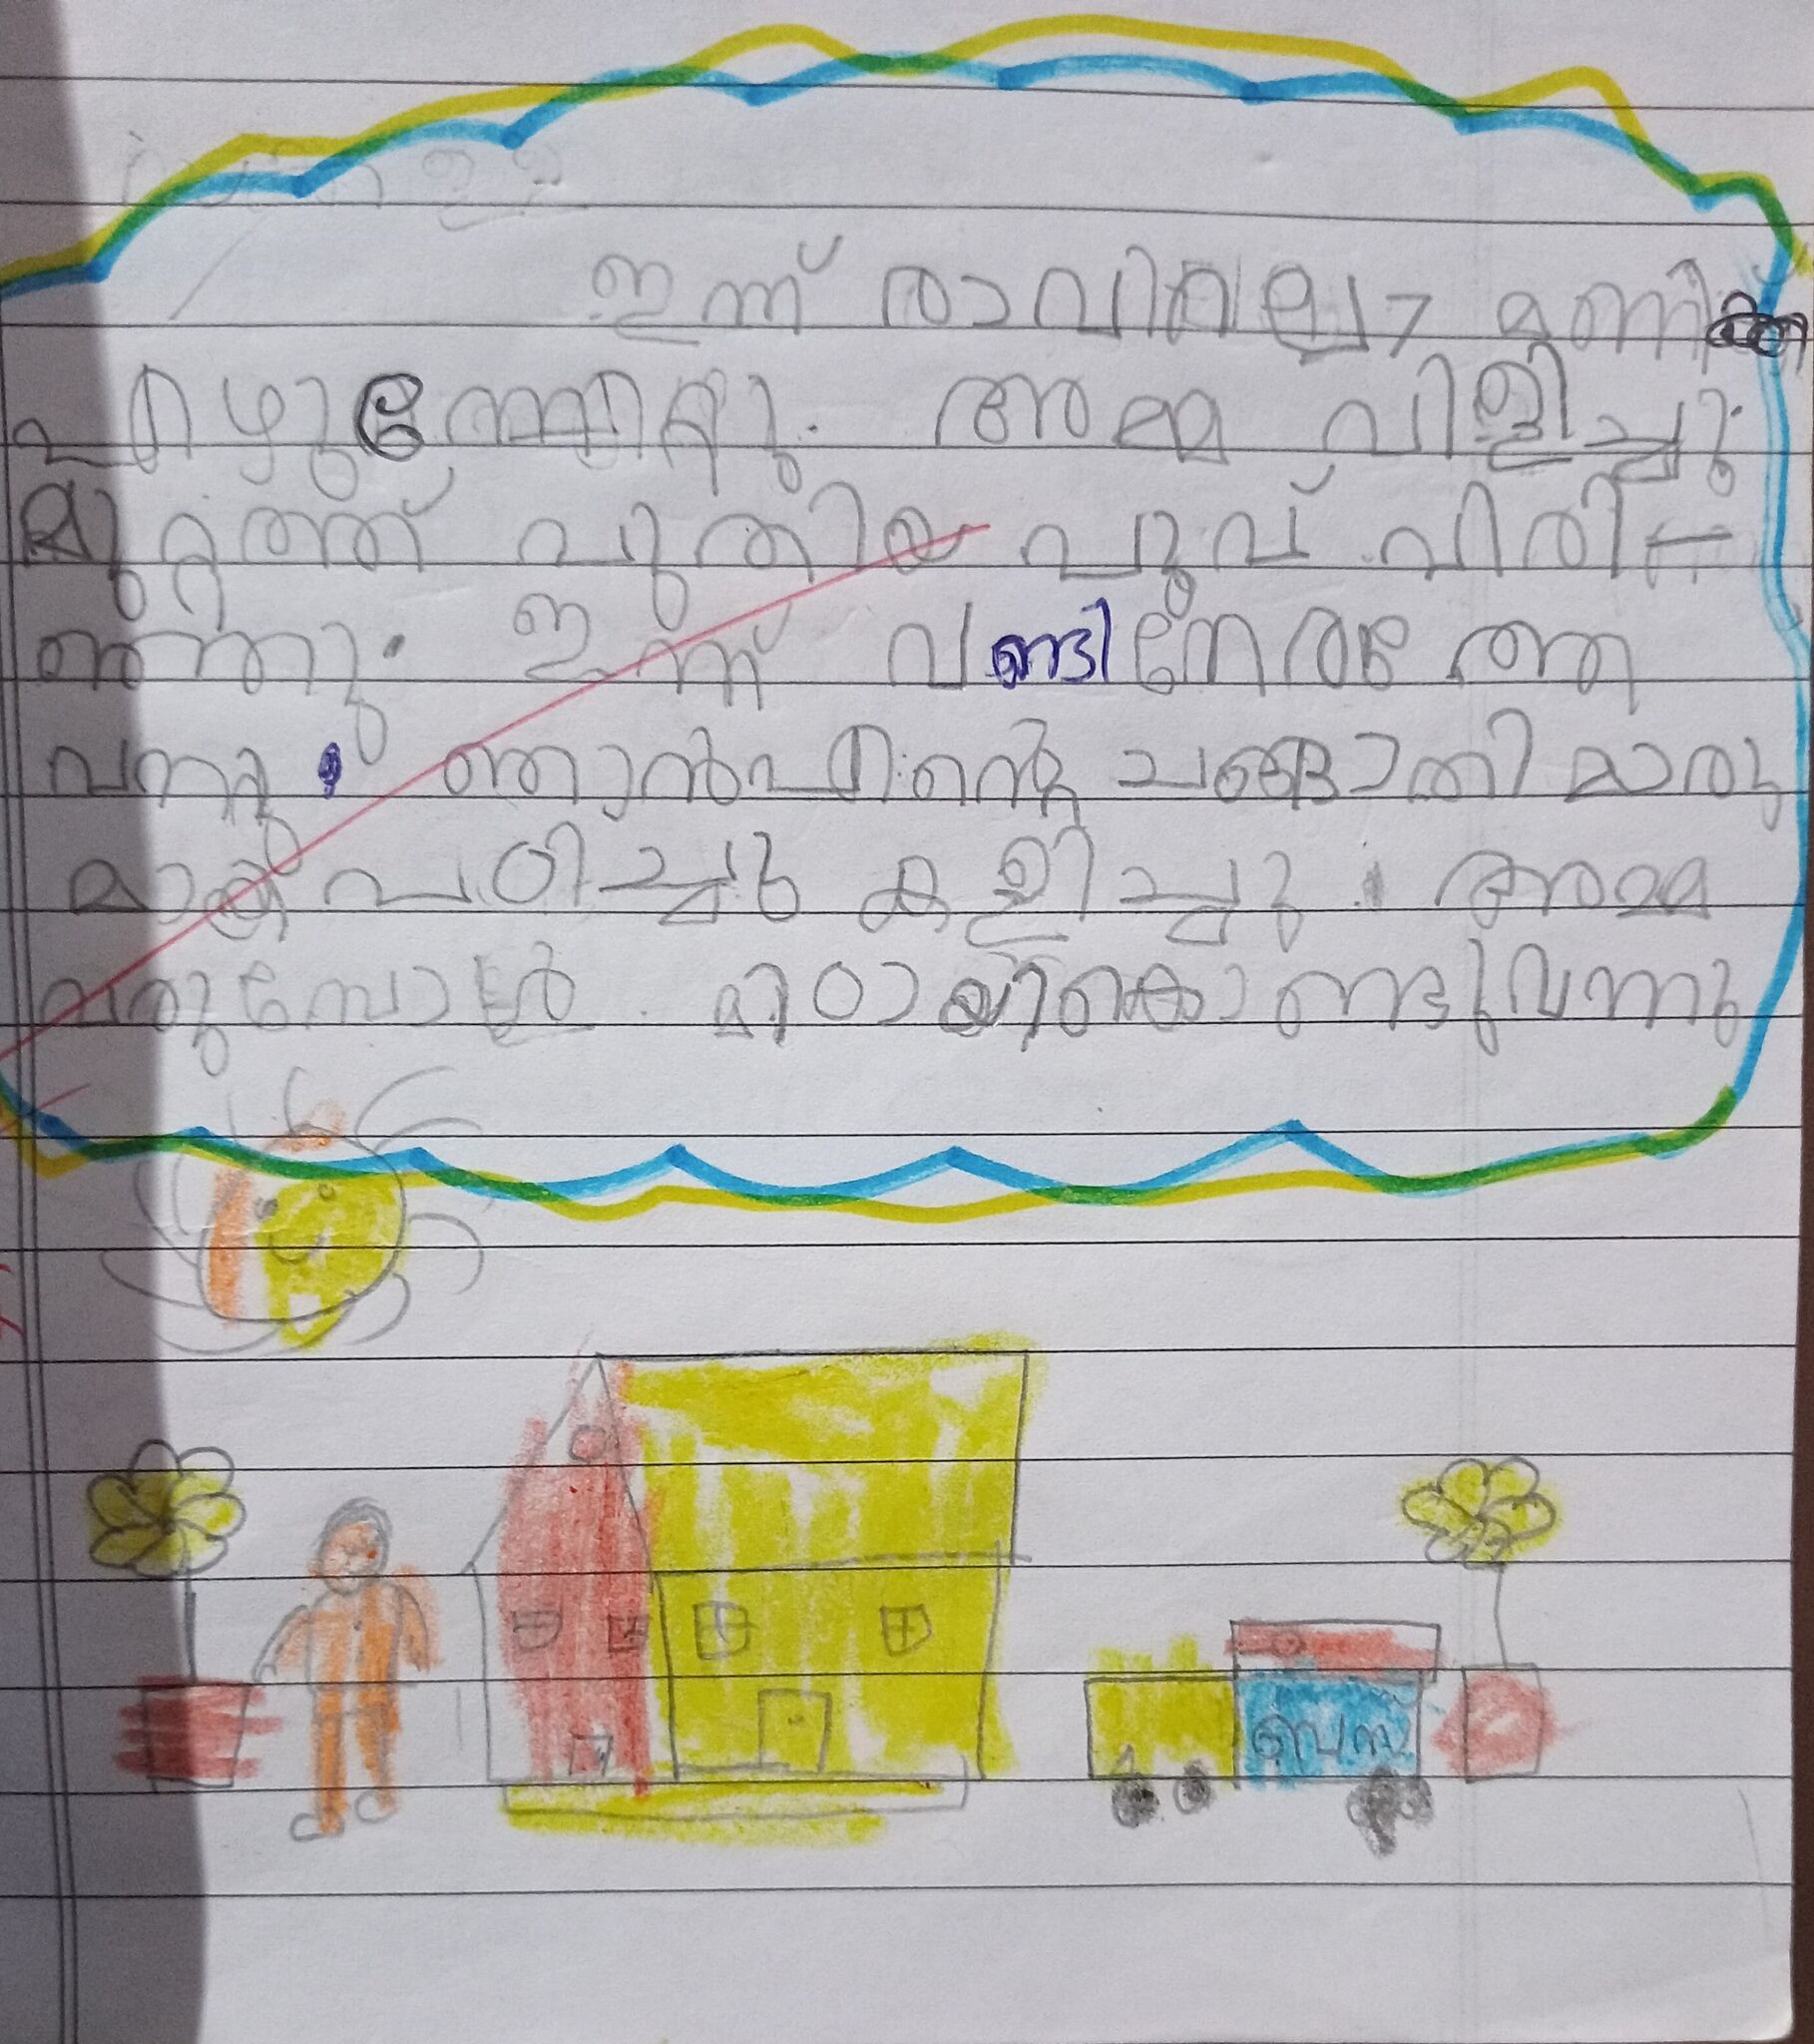 ഇന്ന് രാവിലെ 7 മണി
അമ്മ വിളിച്ചു.
മുറ്റത്ത് പുതിയ പൂവ് വിരി
ഞ്ഞു. ഇന്ന് വണ്ടി നേരത്തെ
വന്നു. ഞാൻ എന്റെ ചങ്ങാതി മാരു
മായി പഠിച്ചു കളിച്ചു. അമ്മ
വരുമ്പോൾ മിഠായി കൊണ്ടുവന്നു
ബസ